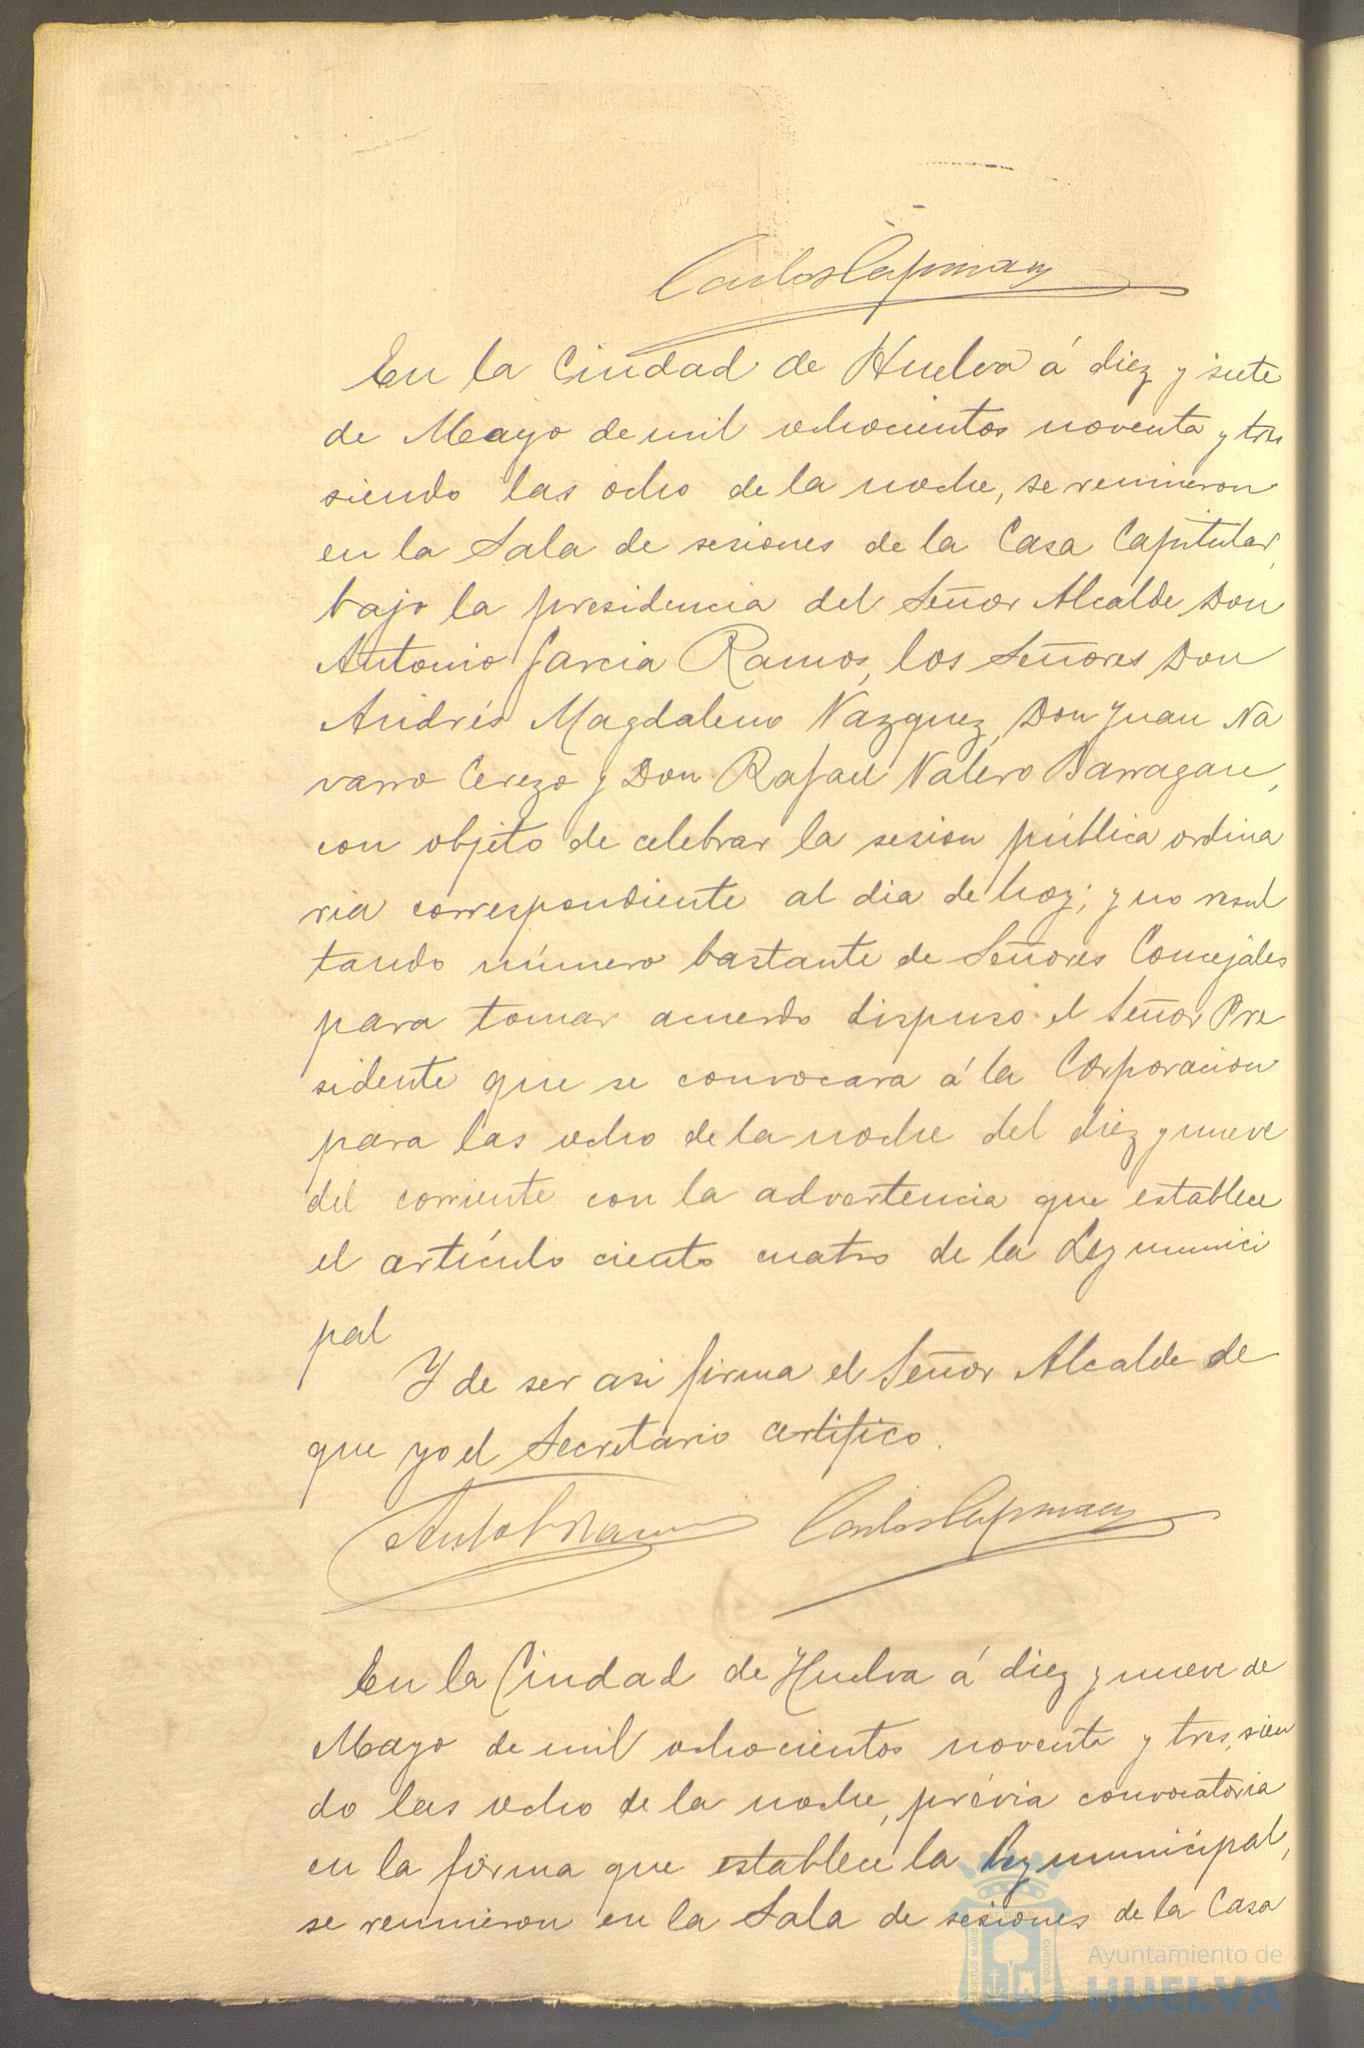 Carlos Capmany
En la Ciudad de Huelva á diez y siete
de Mayo de mil ochocientos noventa y tres
siendo las ocho de la noche, se reunieron
en la Sala de sesiones de la Casa Capitular,
bajo la presidencia del Señor Alcalde Don
Antonio Garcia Ramos, los Señores Don
Andrés Magdaleno Vazquez, Don Juan Na
varro Cerezo y Don Rafael Valero Barragan,
con objeto de celebrar la sesion pública ordina
ria correspondiente al dia de hoy; y no resul
tando número bastante de Señores Concejales
para tomar acuerdo dispuso el Señor Pre
sidente que se convocara á la Corporacion
para las ocho de la noche del diez y nueve
del corriente con la advertencia que establece
el artículo ciento cuatro de la Ley munici
pal
Y de ser asi firma el Señor Alcalde de
que yo el Secretario certifico.
Carlos Capmany
En la Ciudad de Huelva á diez y nueve de
Mayo de mil ochocientos noventa y tres, sien
do las ocho de la noche, prévia convocatoria
en la forma que establece la Ley municipal,
se reunieron en la Sala de sesiones de la Casa
Ayuntamiento de
HUELVA